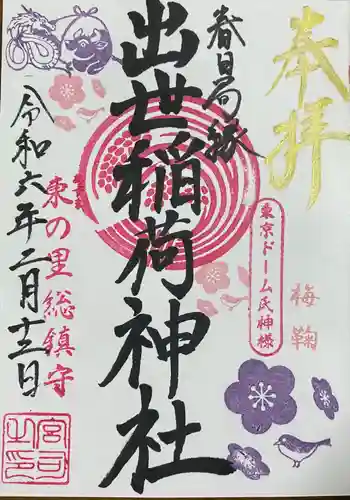 奉拝
春日局縁
東京ドーム氏神様
梅鞠
出世稲荷神社
東の里総鎮守
令和六年二月十三日
宮司之印